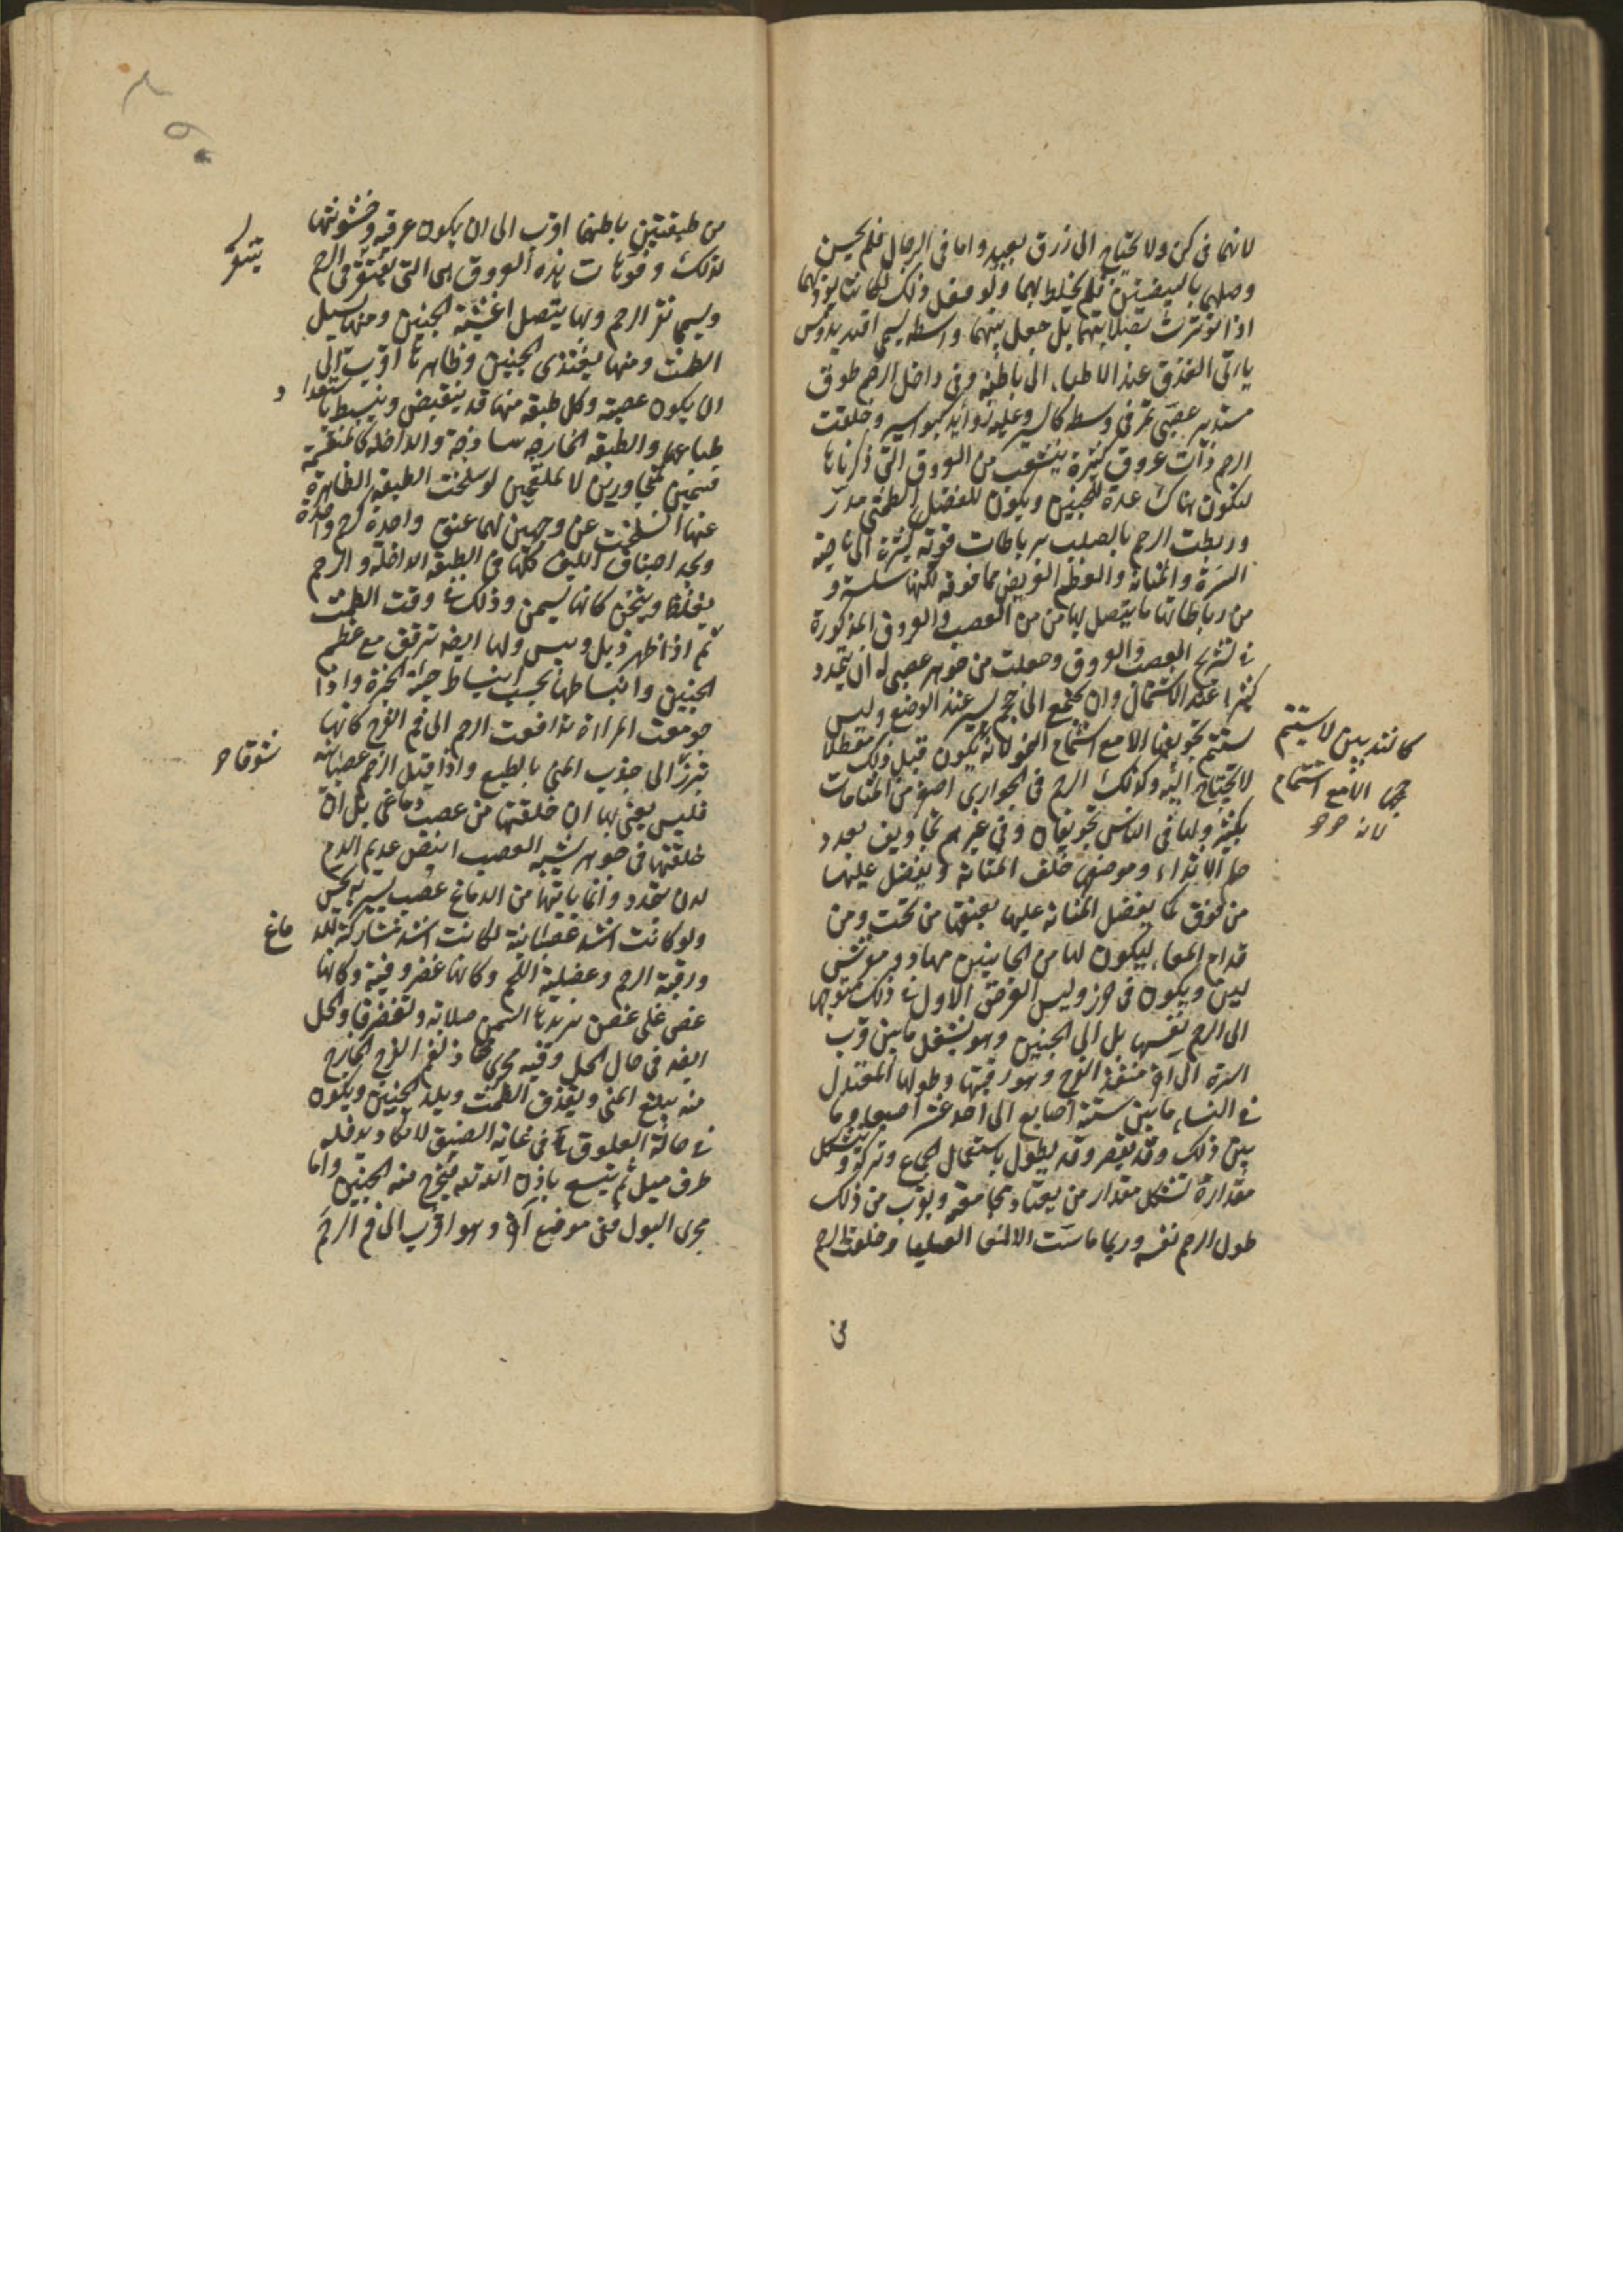 لانهما فى كن ولا تحتاج الى زرق بعيد واما فى الرجال فلم يحسن
وصلهما بالبيضتين فلم يخلط بهما ولو فعل ذلك لكانتا تؤذيهما
اذا توترت بصلابتهما بل جعل بينهما واسطه يسمى اقنديدوس
يأتى القذف عند الاطباء الى باطنه وفى داخل الرحم طوق
مستدير عصبى فى وسطه كالسير وعليه زوائد كبواسير وخلقت
الرحم ذات عروق كثيرة ينشعب من العروق التى ذكرناها
لتكون هناك عدة للجنين ويكون للفضل الطمثى مدرّ
وربطت الرحم بالصلب برباطات قويه كثيرة الى ناحية
السرة والمثانة والعظم العريض مما فوقه لكنها سلسة و
من رباطاتها ما يتصل بها من العصب والعروق المذكورة
فى تشريح العصب والعروق وجعلت من جوهر عصبى له ان يتمدد
كثيرا عند الاشتمال وان يجتمع الى حجم يسير عند الوضع وليس
يستتم تجويفها الا مع استتمام النمو لانه يكون قبل ذلك معطلا
لا يحتاج اليه وكذلك الرحم فى الجوارى اصغر من المثانات
بكثير ولها فى الناس تجويفان وفى غيرهم تجاويف بعدد
حلم الاثداء وموضعها خلف المثانة ويفضل عليها
من فوق كما يفضل المثانة عليها بعنقها من تحت ومن
قدام المعاء ليكون لها من الجانبين مهاد ومفرش
لين ويكون فى حرز وليس الغرض الاول فى ذلك متوجها
الى الرحم نفسها بل الى الجنين وهو يشغل ما بين قرب
السرة الى آخر منفذ الفرج وهو رقبتها وطولها المعتدل
فى النساء ما بين ستة اصابع الى احد عشر اصبعا وما
بين ذلك وقد يقصر وقد يطول باستعمال الجماع وتركه ويتشكل
مقداره تشكل مقدار من يعتاد مجامعتها ويقرب من ذلك
طول الرحم نفسه وربما ماست الامعاء العليا وخلقت الرحم
من
كالثديين لا يستتم
حجمها الا مع استتمام
لانه
من طبقتين باطنهما اقرب الى ان يكون عرقيه وخشونتها
لذلك وفوهات هذه العروق هى التى تنتقر فى الرحم
ويسمى نقر الرحم وبها يتصل اغشية الجنين ومنها يسيل
الطمث ومنها يغتذى الجنين وظاهرتها اقرب الى
ان يكون عصبيه وكل طبقه منها قد ينقبض وينبسط باستعداد
طباعها والطبقه الخارجه ساذجة والداخله كالمنقسمة
قسمين متجاورين لا ملتحمين لو سلخت الطبقه الظاهرة
عنها انسلخت عن وجهين لهما عنق واحدة كرحم واحدة
ويجد اصناف الليف كلها فى الطبقة الداخلة والرحم
يغلظ ويثخن كانها يسمن وذلك فى وقت الطمث
ثم اذا طهر ذبل ويبس ولها ايضا ترفق مع عظم
الجنين وانبساطها بحسب انبساط جثة الجنين واذا
جومعت المراة تدافعت الرحم الى فم الفرج كانها
تبرز الى جذب المنى بالطبع واذا قيل الرحم عصبانيه
فليس يعنى بها ان خلقتها من عصب دماغى بل ان
خلقتها فى جوهر يشبه العصب ابيض عديم الدم
لدن يتمدد وانما ياتيها من الدماغ عصب يسير يحس
ولو كانت اشد عصبانية لكانت اشد مشاركة للدماغ
ورقبة الرحم وعضلية اللحم وكانها غضروفية وكانها
غصن على غصن يزيدها السمن صلابه وتغضرفا والحمل
ايضا فى حال الحبل وفيه مجرى محاذ لفم الفرج الخارج
منه يبلع المنى ويقذف الطمث ويلد الجنين ويكون
فى حالة العلوق فى غاية الضيق لا يكاد يدخله
طرف ميل ثم يتسع باذن الله تعالى فيخرج منه الجنين واما
مجرى البول فمن موضع آخر وهو اقرب الى فم الرحم